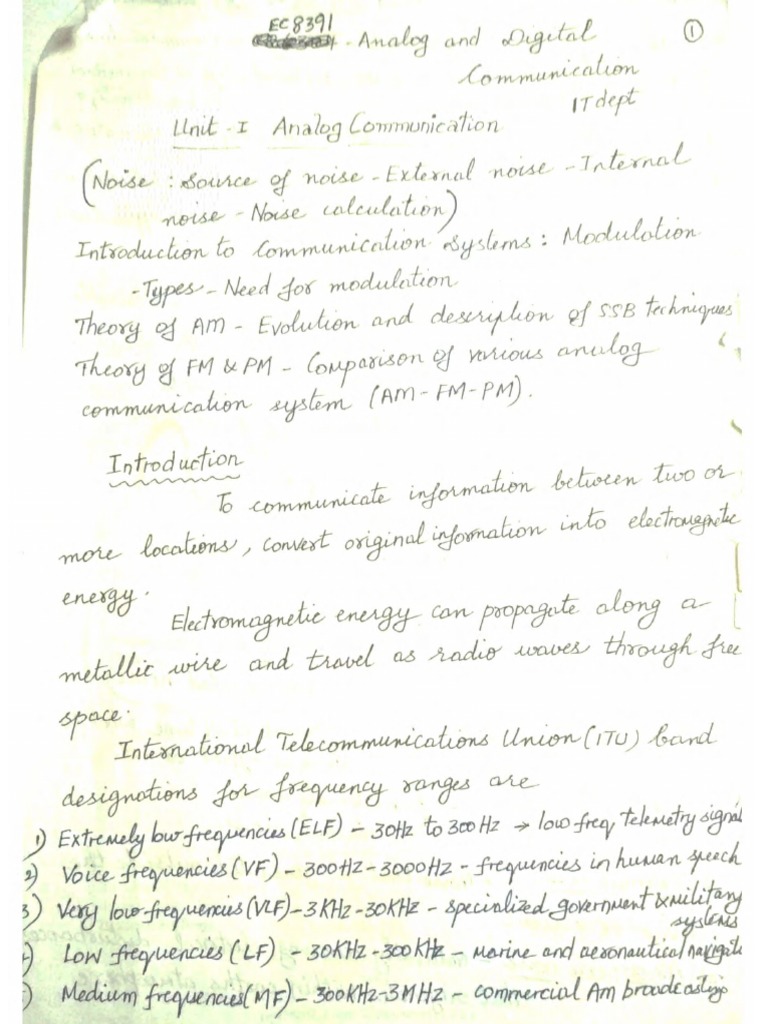 EC8391
①
- Analog and Digital
Communication
IT dept
Unit - I Analog Communication
(Noise : Source of noise - External noise - Internal
noise - Noise calculation)
Introduction to Communication Systems : Modulation
- Types - Need for modulation
Theory of AM - Evolution and description of SSB techniques
Theory of FM & PM - Comparison of various analog
communication system (AM - FM - PM).
Introduction
To communicate information between two or
more locations, convert original information into electromagnetic
energy.
Electromagnetic energy can propagate along a
metallic wire and travel as radio waves through free
space.
International Telecommunications Union (ITU) band
designations for frequency ranges are
1) Extremely low frequencies (ELF) - 30Hz to 300Hz → low freq telemetry signal
2) Voice frequencies (VF) - 300HZ - 3000Hz - frequencies in human speech
3) Very low-frequencies (VLF) - 3KHz - 30KHz - specialized government & military
systems
Low frequencies (LF) - 30KHz - 300KHz - Marine and aeronautical navigate
Medium frequencies (MF) - 300KHz - 3MHz - commercial Am broadcasting